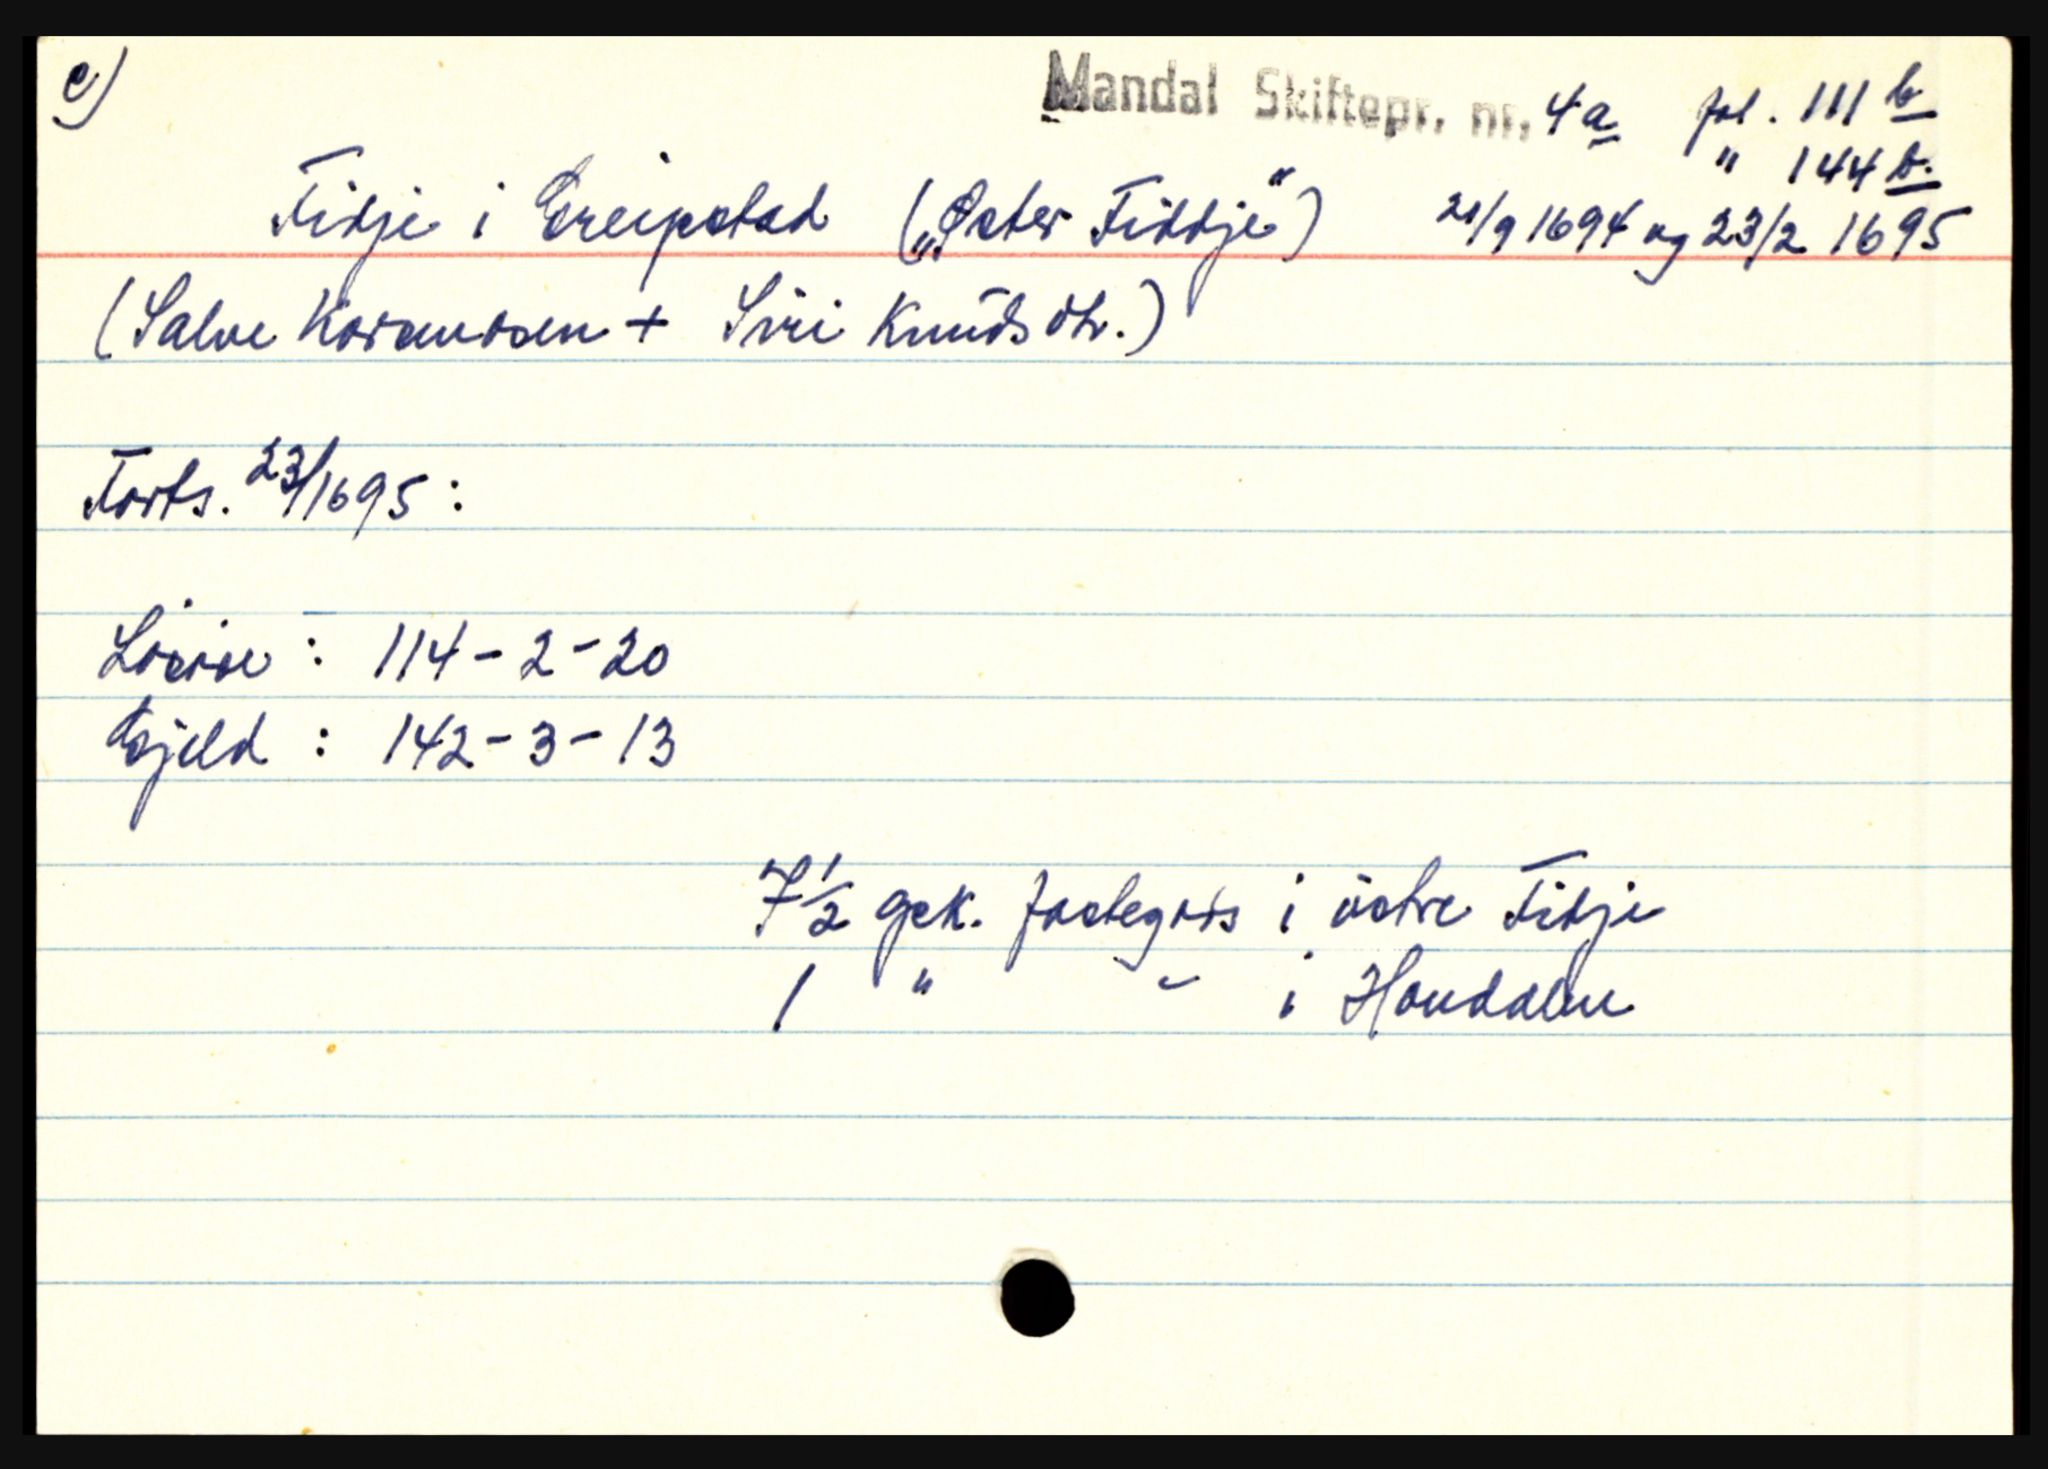 c) Mandal Skiftepr. nr. 4a fol. 111 b
" 144 b.
Fidje i Greipstad („Øster Fiddje“) 21/9 1694 og 23/2 1695
(Salve + Siri Knudsdtr.)
Forts. 23/1695:
Løsøre : 114-2-20
Gjeld : 142-3-13
7 1/2 gsk. fastegods i östre Fidje
1 " " i